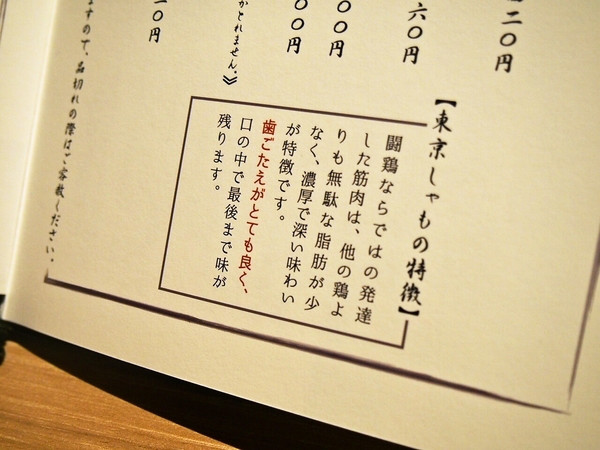 二〇円
六〇円
〇〇円
〇〇円
かとれません。》
一〇円
ますので、品切れの際はご容赦ください。
【東京しゃもの特徴】
闘鶏ならではの発達
した筋肉は、他の鶏よ
りも無駄な脂肪が少
なく、濃厚で深い味わい
が特徴です。
歯ごたえがとても良く、
口の中で最後まで味が
残ります。